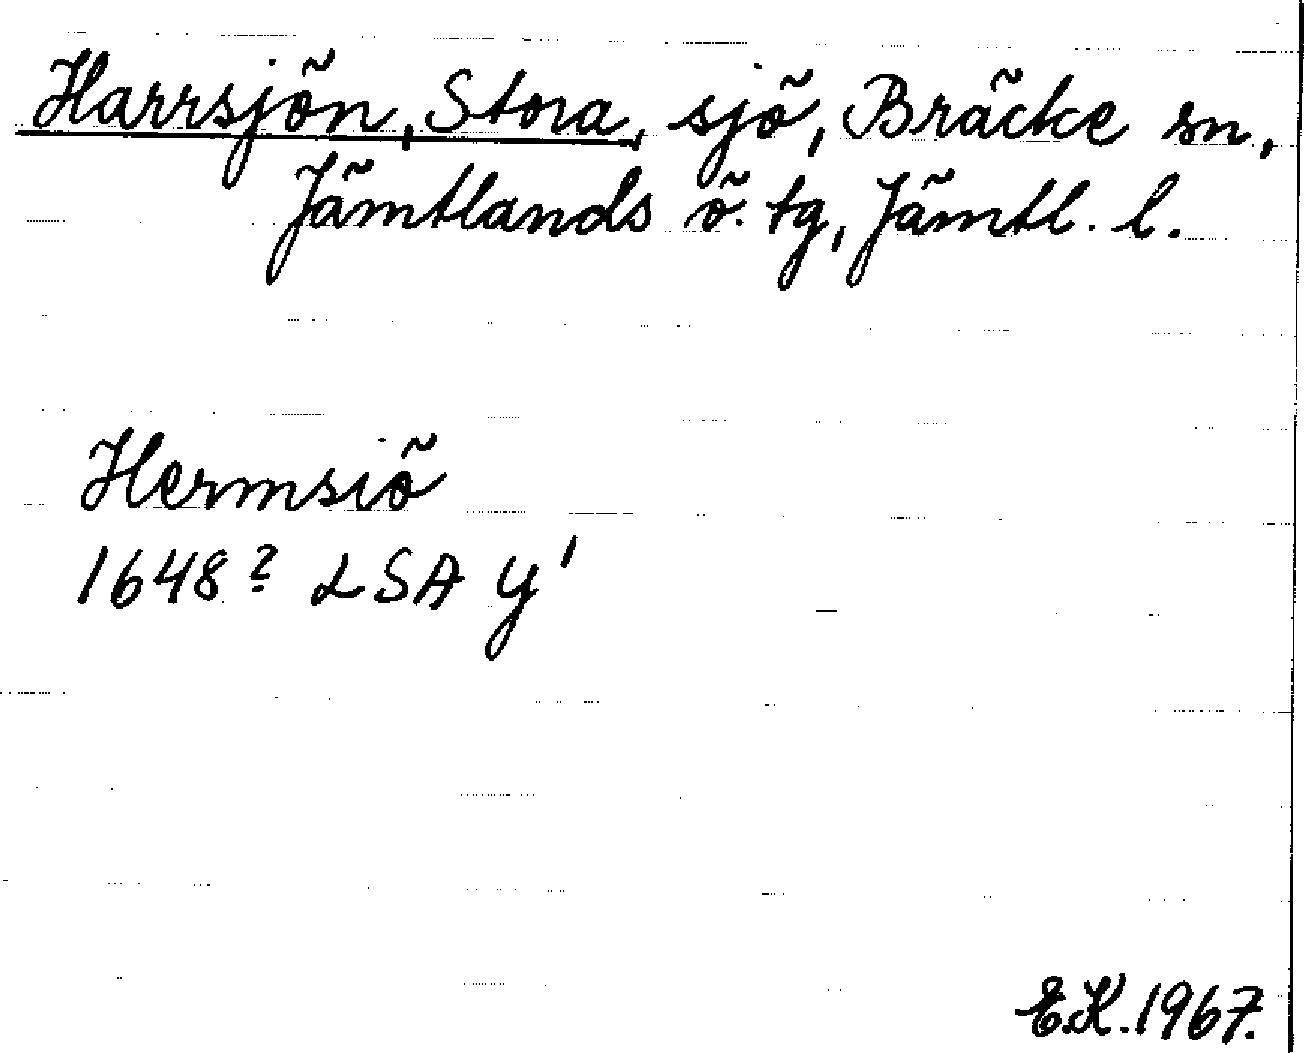 Harrsjön, Stora, sjö, Bräcke sn,
Jämtlands ö. tg, Jämtl. l.
Hermsiö
1648? LSA Y¹
E.K. 1967.